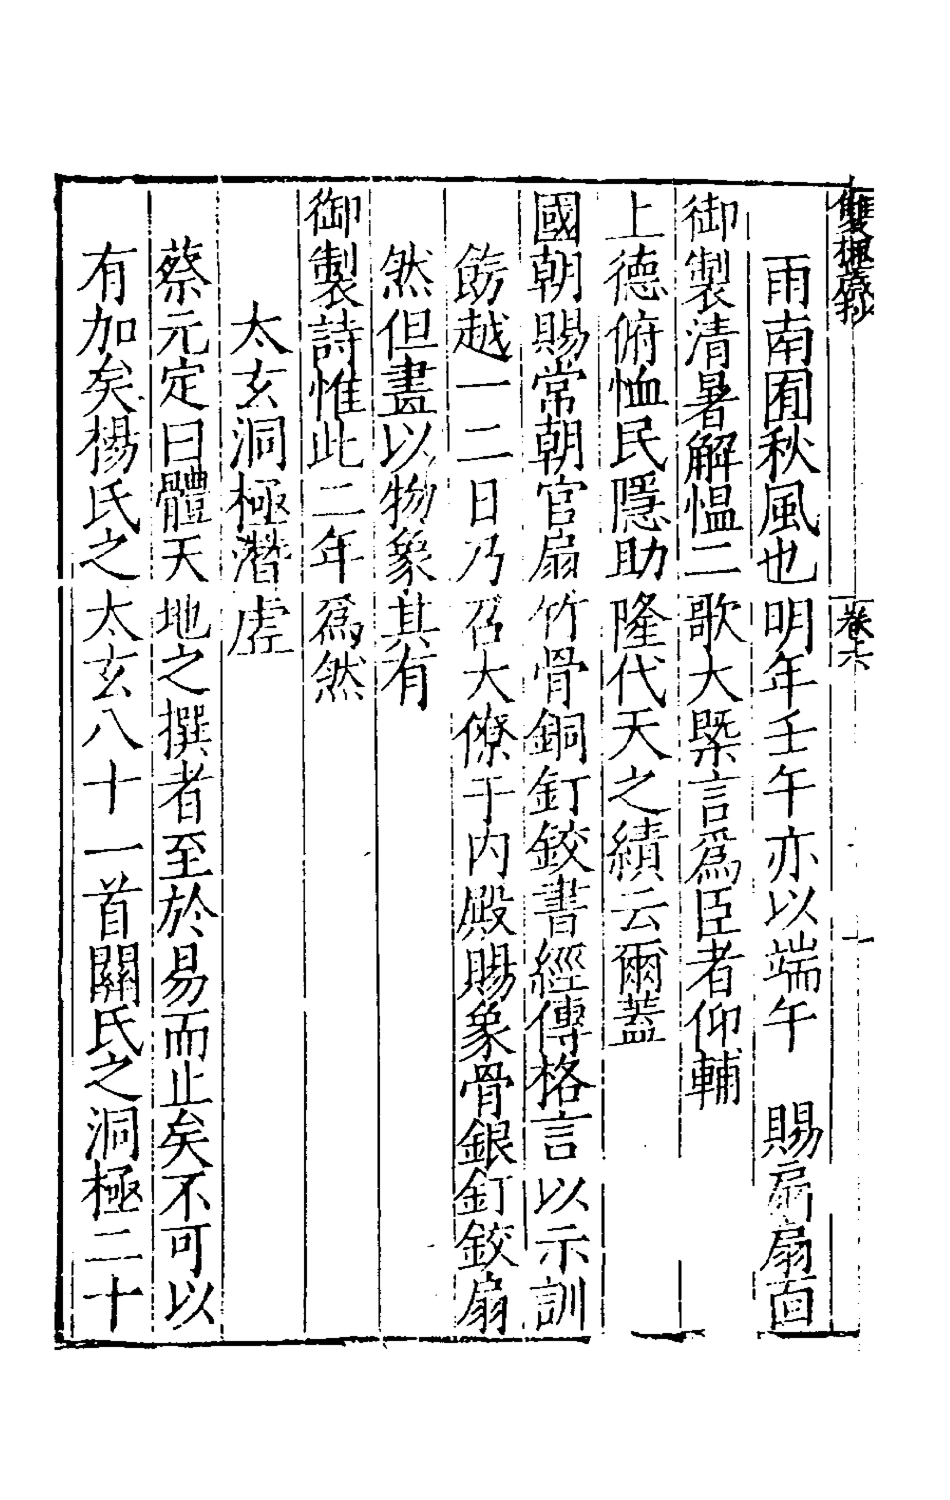 雙槐歲抄
卷六
十
雨南囿秋風也明年壬午亦以端午 賜扇扇面
御製清暑解慍二歌大槩言爲臣者仰輔
上德俯恤民隱助隆代天之績云爾蓋
國朝賜常朝官扇竹骨銅釘鉸書經傳格言以示訓
飭越一二日乃召大僚于内殿賜象骨銀釘鉸扇
然但畫以物象其有
御製詩惟此二年爲然
太玄洞極潛虛
蔡元定曰體天地之撰者至於易而止矣不可以
有加矣楊氏之太玄八十一首關氏之洞極二十